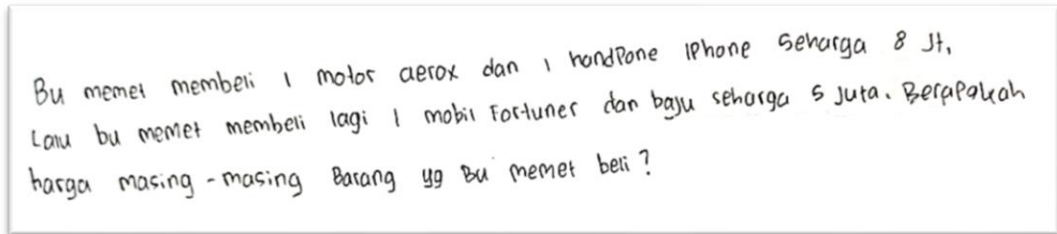 Bu memet membeli 1 motor aerox dan 1 handPone IPhone seharga 8 Jt,
Lalu bu memet membeli lagi 1 mobil Fortuner dan baju seharga 5 Juta. Berapakah
harga masing-masing Barang yg Bu memet beli?